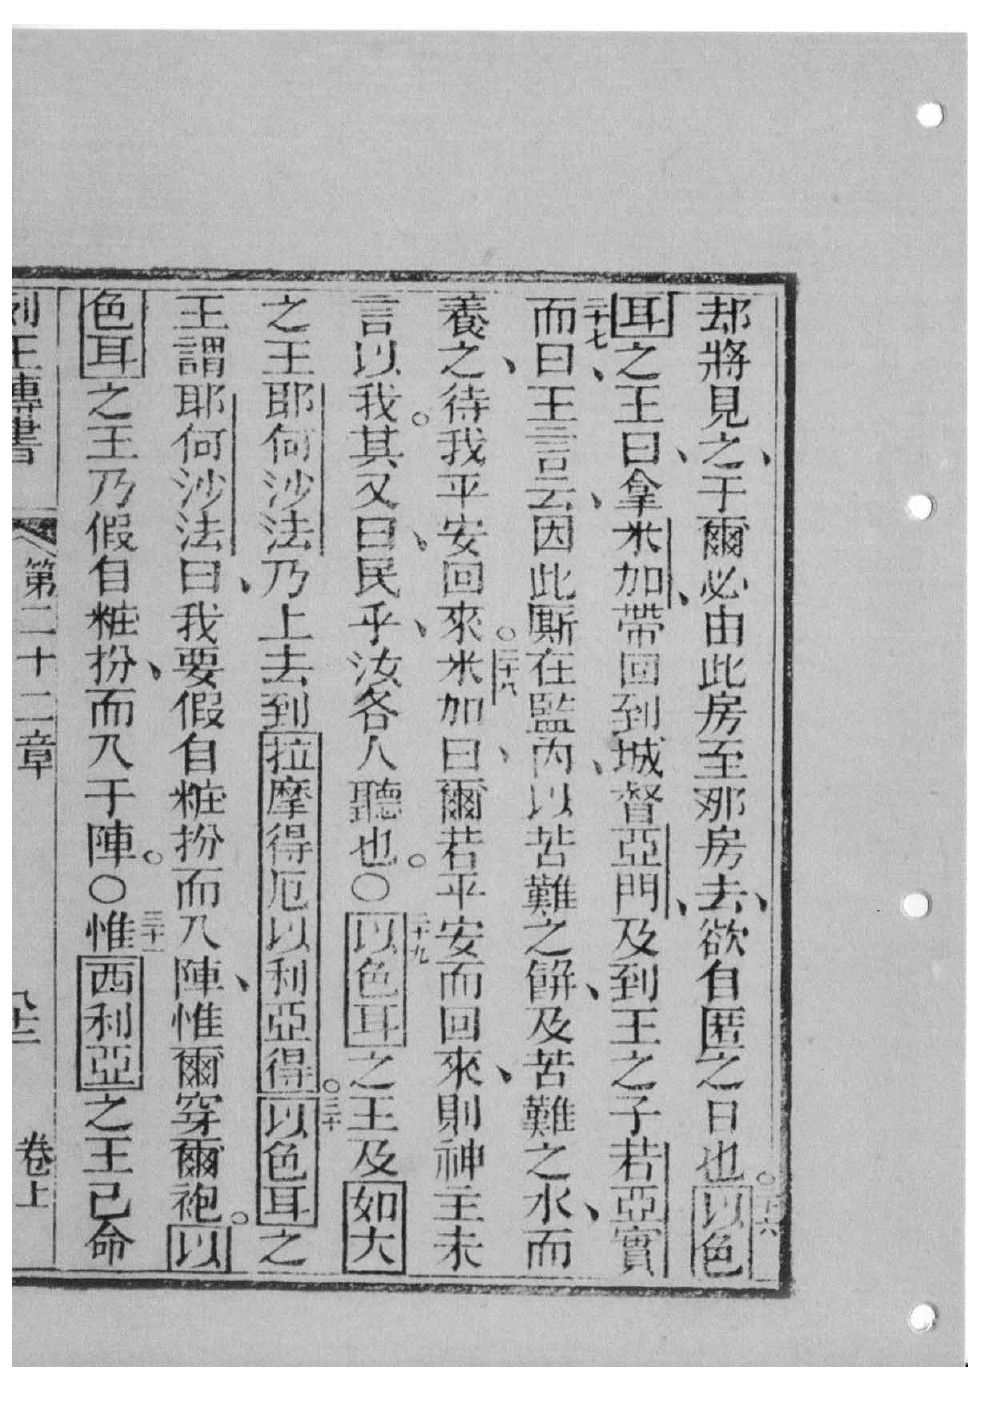 却將見之、于爾必由此房至那房去、欲自匿之日也。二十六以色
耳之王曰、拿米加、帶回到城督亞門、及到王之子若亞實
二十七而曰、王言云、因此厮在監內、以苦難之餅、及苦難之水、而
養之、待我平安回來。二十八米加曰、爾若平安而回來、則神主未
言以我。其又曰、民乎、汝各人聽也。〇二十九以色耳之王及如大
之王耶何沙法乃上去到拉摩得厄以利亞得。三十以色耳之
王謂耶何沙法曰、我要假自粧扮而入陣、惟爾穿爾袍。以
色耳之王乃假自粧扮、而入于陣。〇三十一惟西利亞之王已命
列王傳書 第二十二章 卷上